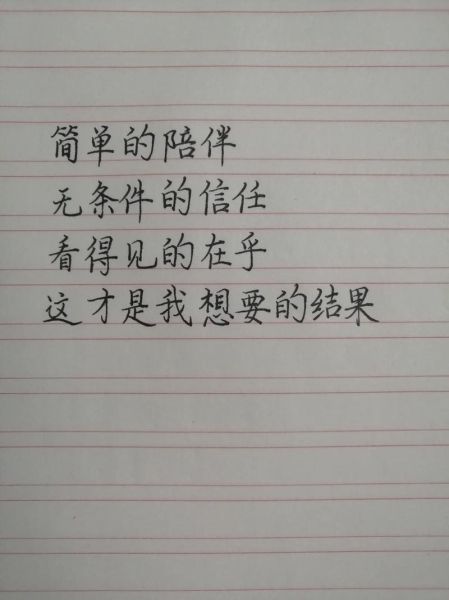 简单的陪伴
无条件的信任
看得见的在乎
这才是我想要的结果